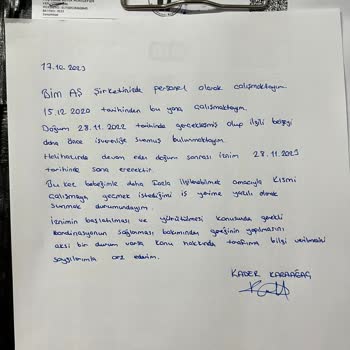 17.10.2023
Bim AŞ Şirketinizde personel olarak çalışmaktayım.
15.12.2020 tarihinden bu yana çalışmaktayım.
Doğum 28.11.2022 tarihinde gerçekleşmiş olup ilgili belgeyi
daha önce işverenliğe sunmuş bulunmaktayım.
Halihazırda devam eden doğum sonrası iznim 28.11.2023
tarihinde sona erecektir.
Bu kez bebeğimle daha fazla ilgilenebilmek amacıyla Kısmi
Çalışmaya geçmek istediğimi iş yerime yazılı olarak
sunmak durumundayım.
İznimin başlatılması ve yürütülmesi konusunda gerekli
koordinasyonun sağlanması bakımından gereğinin yapılmasını
aksi bir durum varsa konu hakkında tarafıma bilgi verilmesini
saygılarımla arz ederim.
KADER KARAAĞAÇ